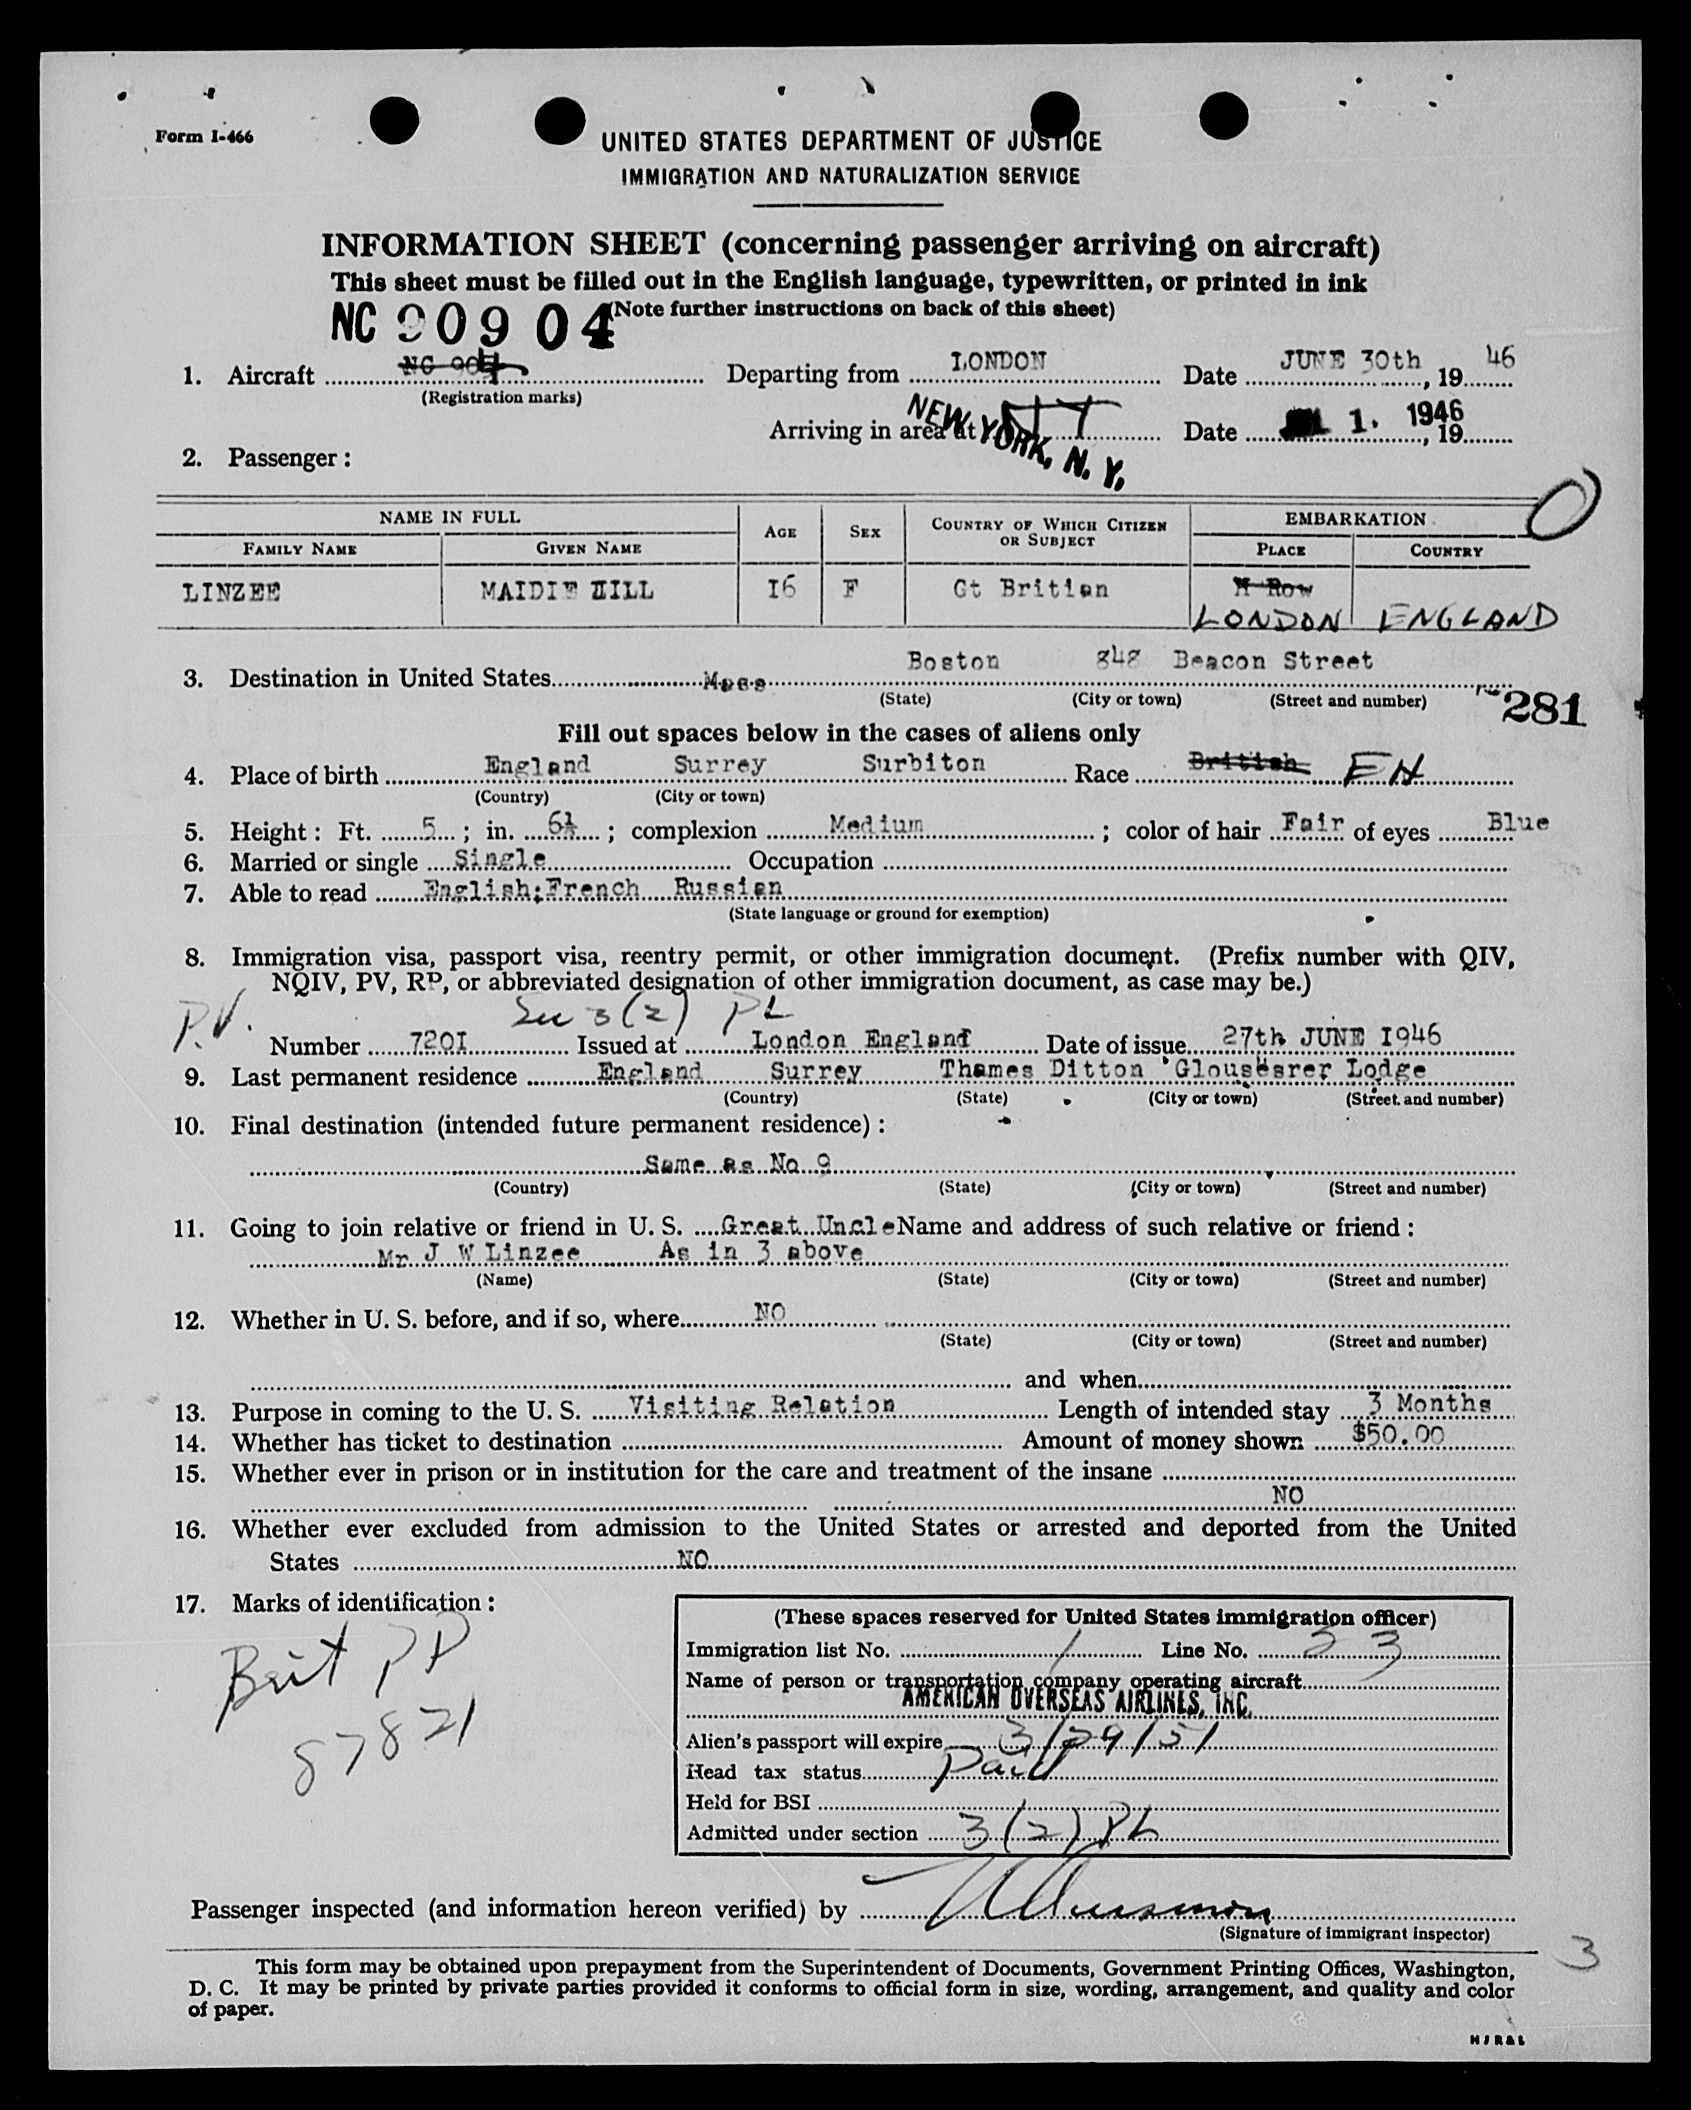 Form I-466
UNITED STATES DEPARTMENT OF JUSTICE
IMMIGRATION AND NATURALIZATION SERVICE
INFORMATION SHEET (concerning passenger arriving on aircraft)
This sheet must be filled out in the English language, typewritten, or printed in ink
(Note further instructions on back of this sheet)
NC 90904
1. Aircraft NC 904 Departing from LONDON Date JUNE 30th, 1946
(Registration marks)
Arriving in area at NEW YORK, N. Y. Date 1. 1946, 19
2. Passenger:
NAME IN FULL AGE SEX COUNTRY OF WHICH CITIZEN OR SUBJECT EMBARKATION
FAMILY NAME GIVEN NAME PLACE COUNTRY
LINZEE MAIDIE HILL 16 F Gt Britian H Row
LONDON ENGLAND
3. Destination in United States Mass Boston 848 Beacon Street
(State) (City or town) (Street and number)
281
Fill out spaces below in the cases of aliens only
4. Place of birth England Surrey Surbiton Race British EN
(Country) (City or town)
5. Height: Ft. 5; in. 6½; complexion Medium; color of hair Fair of eyes Blue
6. Married or single Single Occupation
7. Able to read English;French Russian
(State language or ground for exemption)
8. Immigration visa, passport visa, reentry permit, or other immigration document. (Prefix number with QIV,
NQIV, PV, RP, or abbreviated designation of other immigration document, as case may be.)
P.V. Sec 3(2) PL
Number 7201 Issued at London England Date of issue 27th JUNE 1946
9. Last permanent residence England Surrey Thames Ditton Lodge
(Country) (State) (City or town) (Street and number)
10. Final destination (intended future permanent residence):
Same as No 9
(Country) (State) (City or town) (Street and number)
11. Going to join relative or friend in U. S. Great Uncle Name and address of such relative or friend:
Mr J W Linzee As in 3 above
(Name) (State) (City or town) (Street and number)
12. Whether in U. S. before, and if so, where NO
(State) (City or town) (Street and number)
and when
13. Purpose in coming to the U. S. Visiting Relation Length of intended stay 3 Months
14. Whether has ticket to destination Amount of money shown $50.00
15. Whether ever in prison or in institution for the care and treatment of the insane
NO
16. Whether ever excluded from admission to the United States or arrested and deported from the United
States NO
17. Marks of identification:
Brit PP
87821
(These spaces reserved for United States immigration officer)
Immigration list No. 1 Line No. 33
Name of person or transportation company operating aircraft
AMERICAN OVERSEAS AIRLINES, INC.
Alien's passport will expire 3/29/51
Head tax status Paid
Held for BSI
Admitted under section 3(2) PL
Passenger inspected (and information hereon verified) by
(Signature of immigrant inspector)
3
This form may be obtained upon prepayment from the Superintendent of Documents, Government Printing Offices, Washington,
D. C. It may be printed by private parties provided it conforms to official form in size, wording, arrangement, and quality and color
of paper.